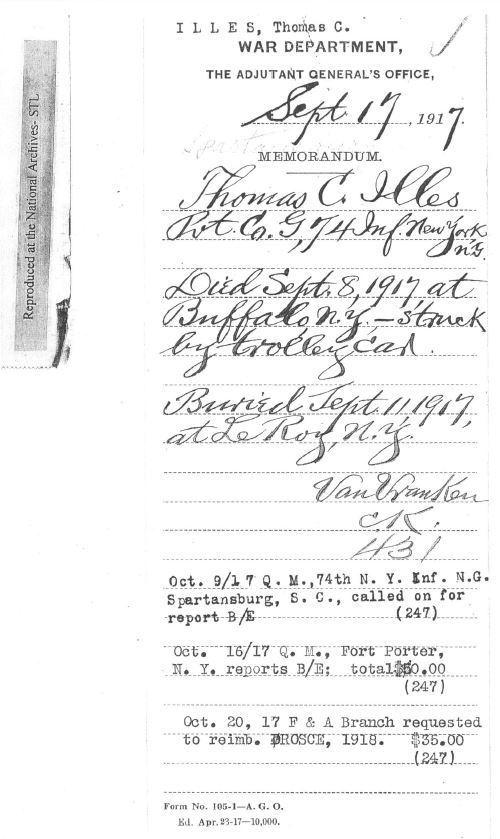 Reproduced at the National Archives- STL
I L L E S, Thomas C.
WAR DEPARTMENT,
THE ADJUTANT GENERAL'S OFFICE,
Sept. 17, 1917.
MEMORANDUM.
Thomas C. Illes
Pvt. Co. G, 74 Inf New York
N.G.
Died Sept. 8, 1917, at
Buffalo, N.Y. – struck
by trolley car.
Buried Sept. 11, 1917,
at Le Roy, N.Y.
Van Vranken
C.K.
431
Oct. 9/17 Q. M.,74th N. Y. Inf. N.G.
Spartansburg, S. C., called on for
report B/E (247)
Oct. 16/17 Q. M., Fort Porter,
N. Y. reports B/E; total $50.00
(247)
Oct. 20, 17 F & A Branch requested
to reimb. OROSCE, 1918. $35.00
(247)
Form No. 105-1—A. G. O.
Ed. Apr. 23-17—10,000.